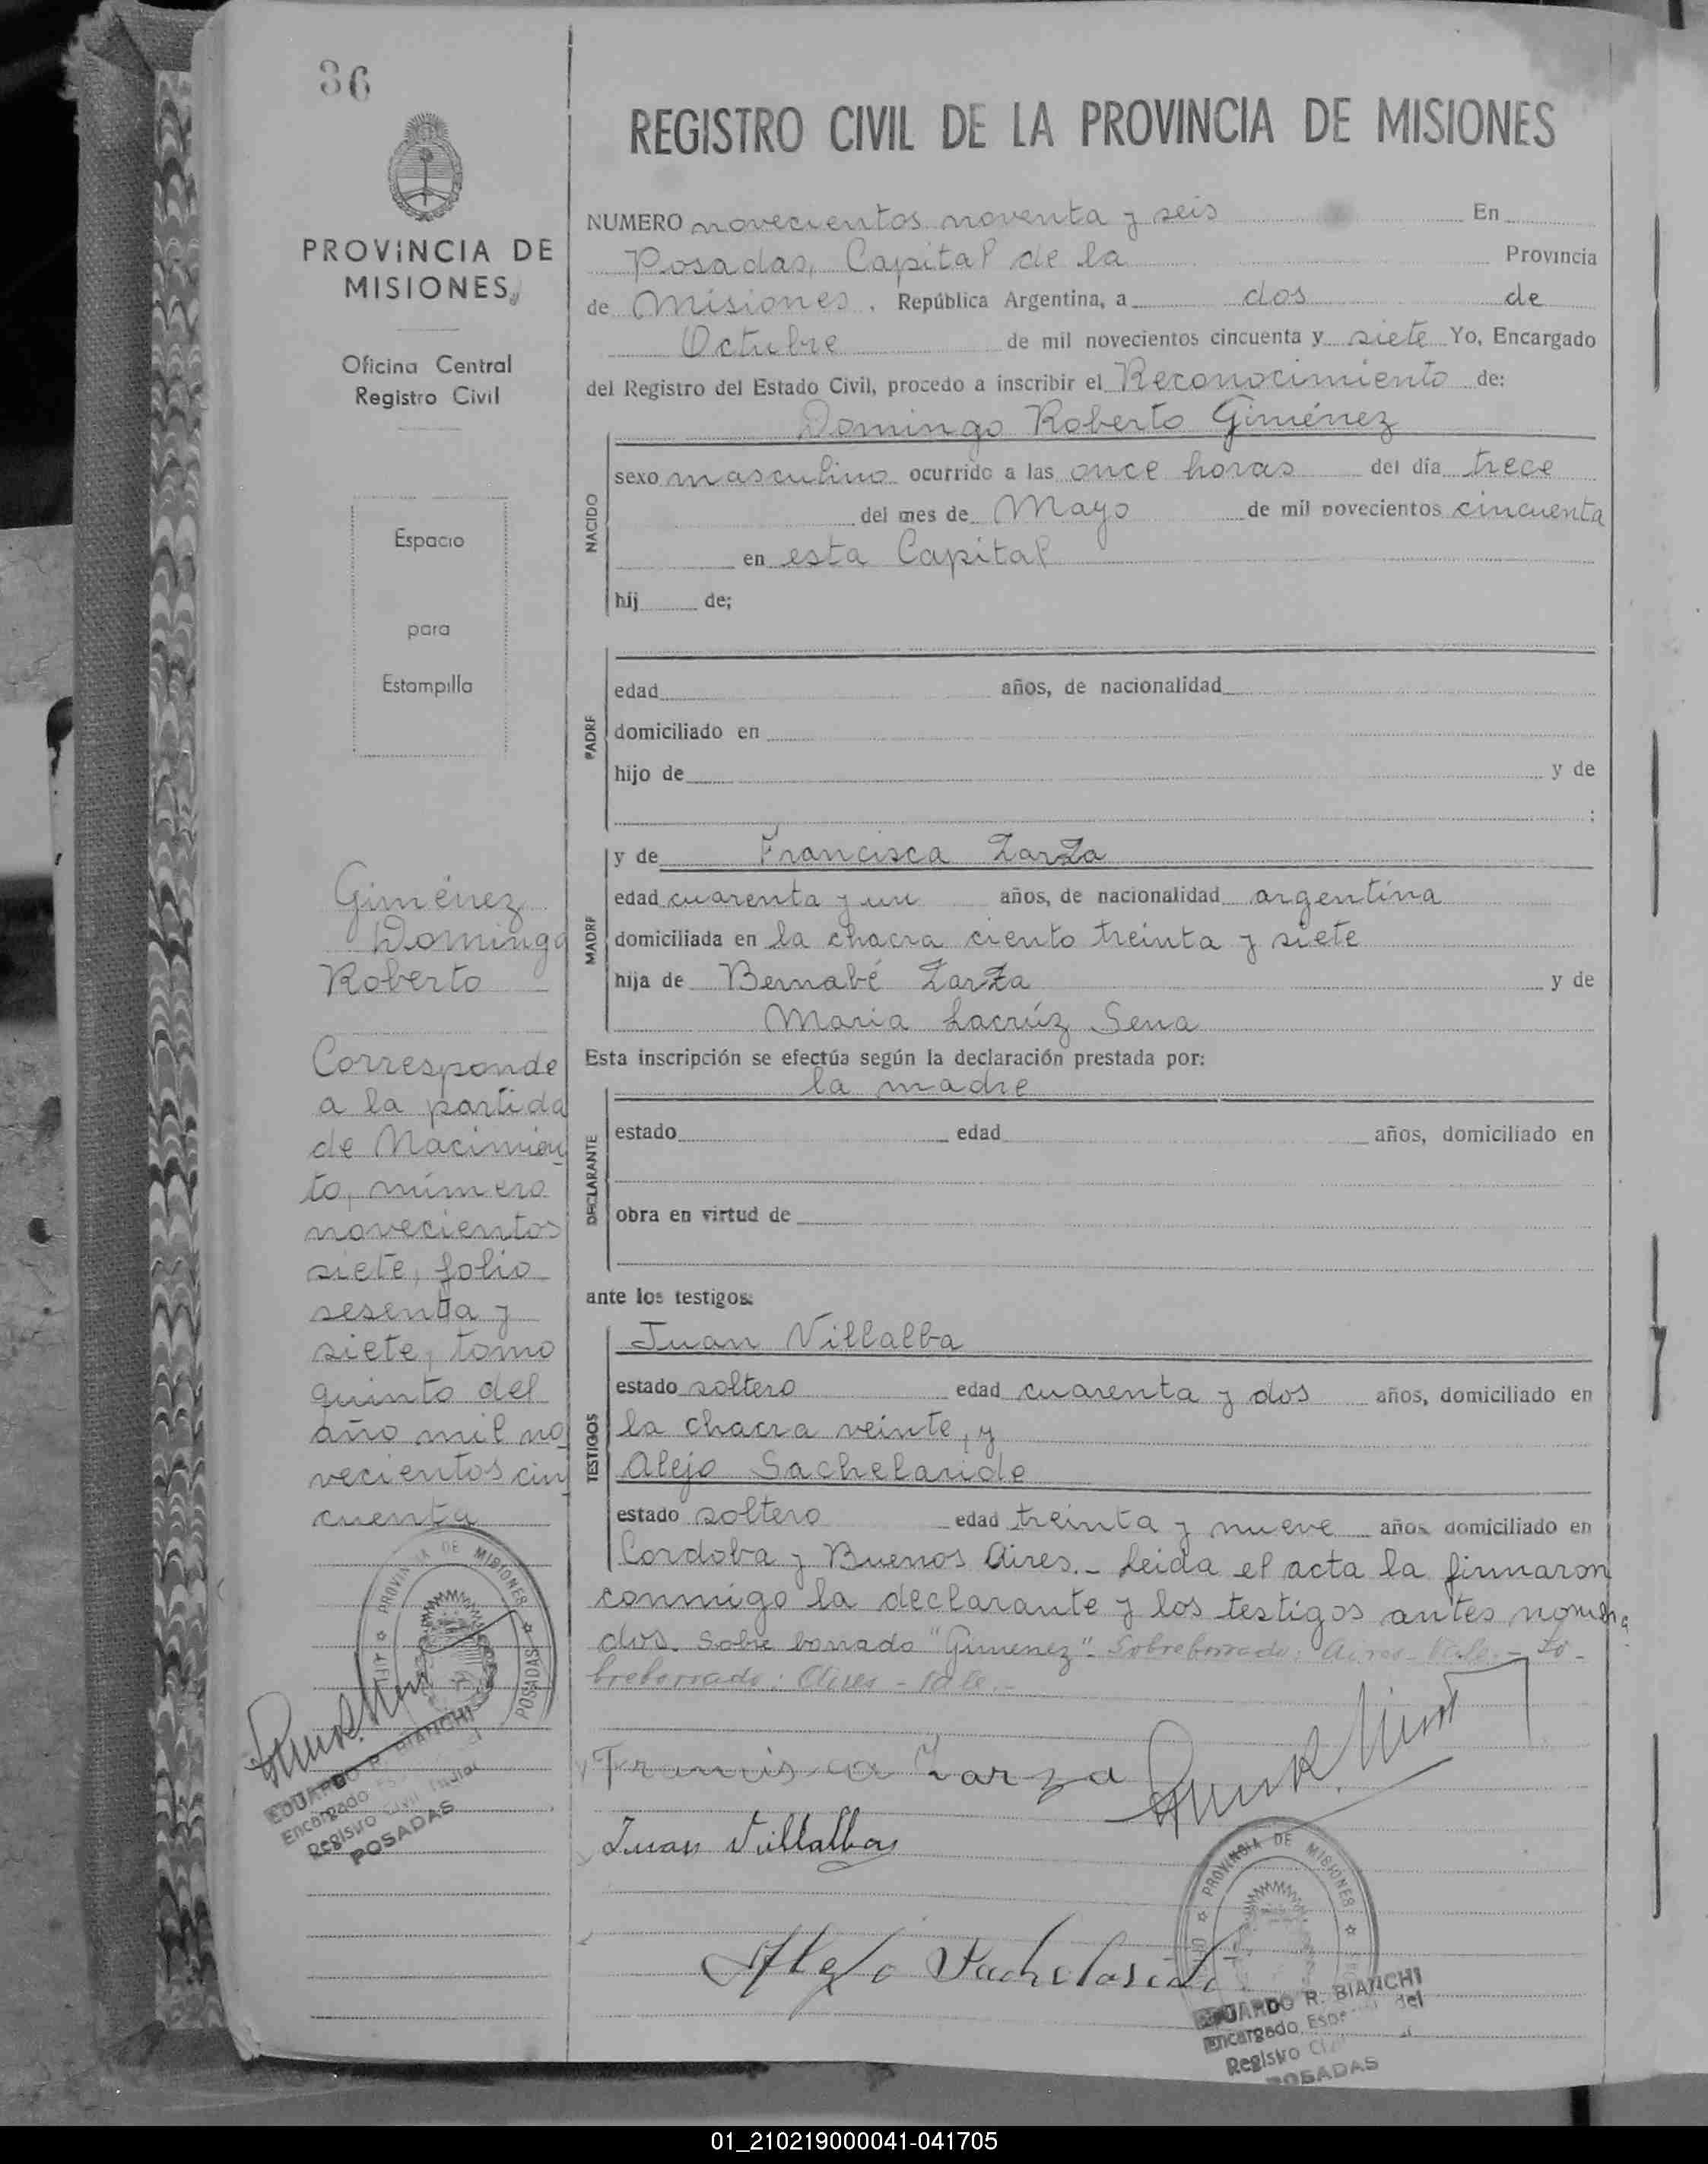 36
PROVINCIA DE
MISIONES
Oficina Central
Registro Civil
Espacio
para
Estampilla
Giménez
Domingo
Roberto
Corresponde
a la partida
de Nacimien
to, número
novecientos
siete, folio
sesenta y
siete, tomo
quinto del
año mil no
vecientos cin
cuenta
PROVINCIA DE MISIONES
POSADAS
EDUARDO R. BIANCHI
Encargado
Registro Civil
POSADAS
REGISTRO CIVIL DE LA PROVINCIA DE MISIONES
NUMERO novecientos noventa y seis En
Posadas, Capital de la Provincia
de Misiones. República Argentina, a dos de
Octubre de mil novecientos cincuenta y siete Yo, Encargado
del Registro del Estado Civil, procedo a inscribir el Reconocimiento de:
Domingo Roberto Giménez
NACIDO
sexo masculino ocurrido a las once horas del día trece
del mes de Mayo de mil novecientos cincuenta
en esta Capital
hij de;
PADRE
edad años, de nacionalidad
domiciliado en
hijo de y de
;
MADRE
y de Francisca Zarza
edad cuarenta y un años, de nacionalidad argentina
domiciliada en la chacra ciento treinta y siete
hija de Bernabé Zarza y de
Maria Lacrúz Sena
Esta inscripción se efectúa según la declaración prestada por:
la madre
DECLARANTE
estado edad años, domiciliado en
obra en virtud de
ante los testigos:
TESTIGOS
Juan Villalba
estado soltero edad cuarenta y dos años, domiciliado en
la chacra veinte, y
Alejo Sachelarido
estado soltero edad treinta y nueve años domiciliado en
Cordoba y Buenos Aires.- Leida el acta la firmaron
conmigo la declarante y los testigos antes nombra
dos. Sobre borrado "Gimenez". Sobreborrado: Aires- Vale.- So-
breborrado: Aires - Vale.-
Francisca Zarza
Juan Villalba
Alejo Sachelarido
PROVINCIA DE MISIONES
EDUARDO R. BIANCHI
Encargado del
Registro
POSADAS
01_210219000041-041705